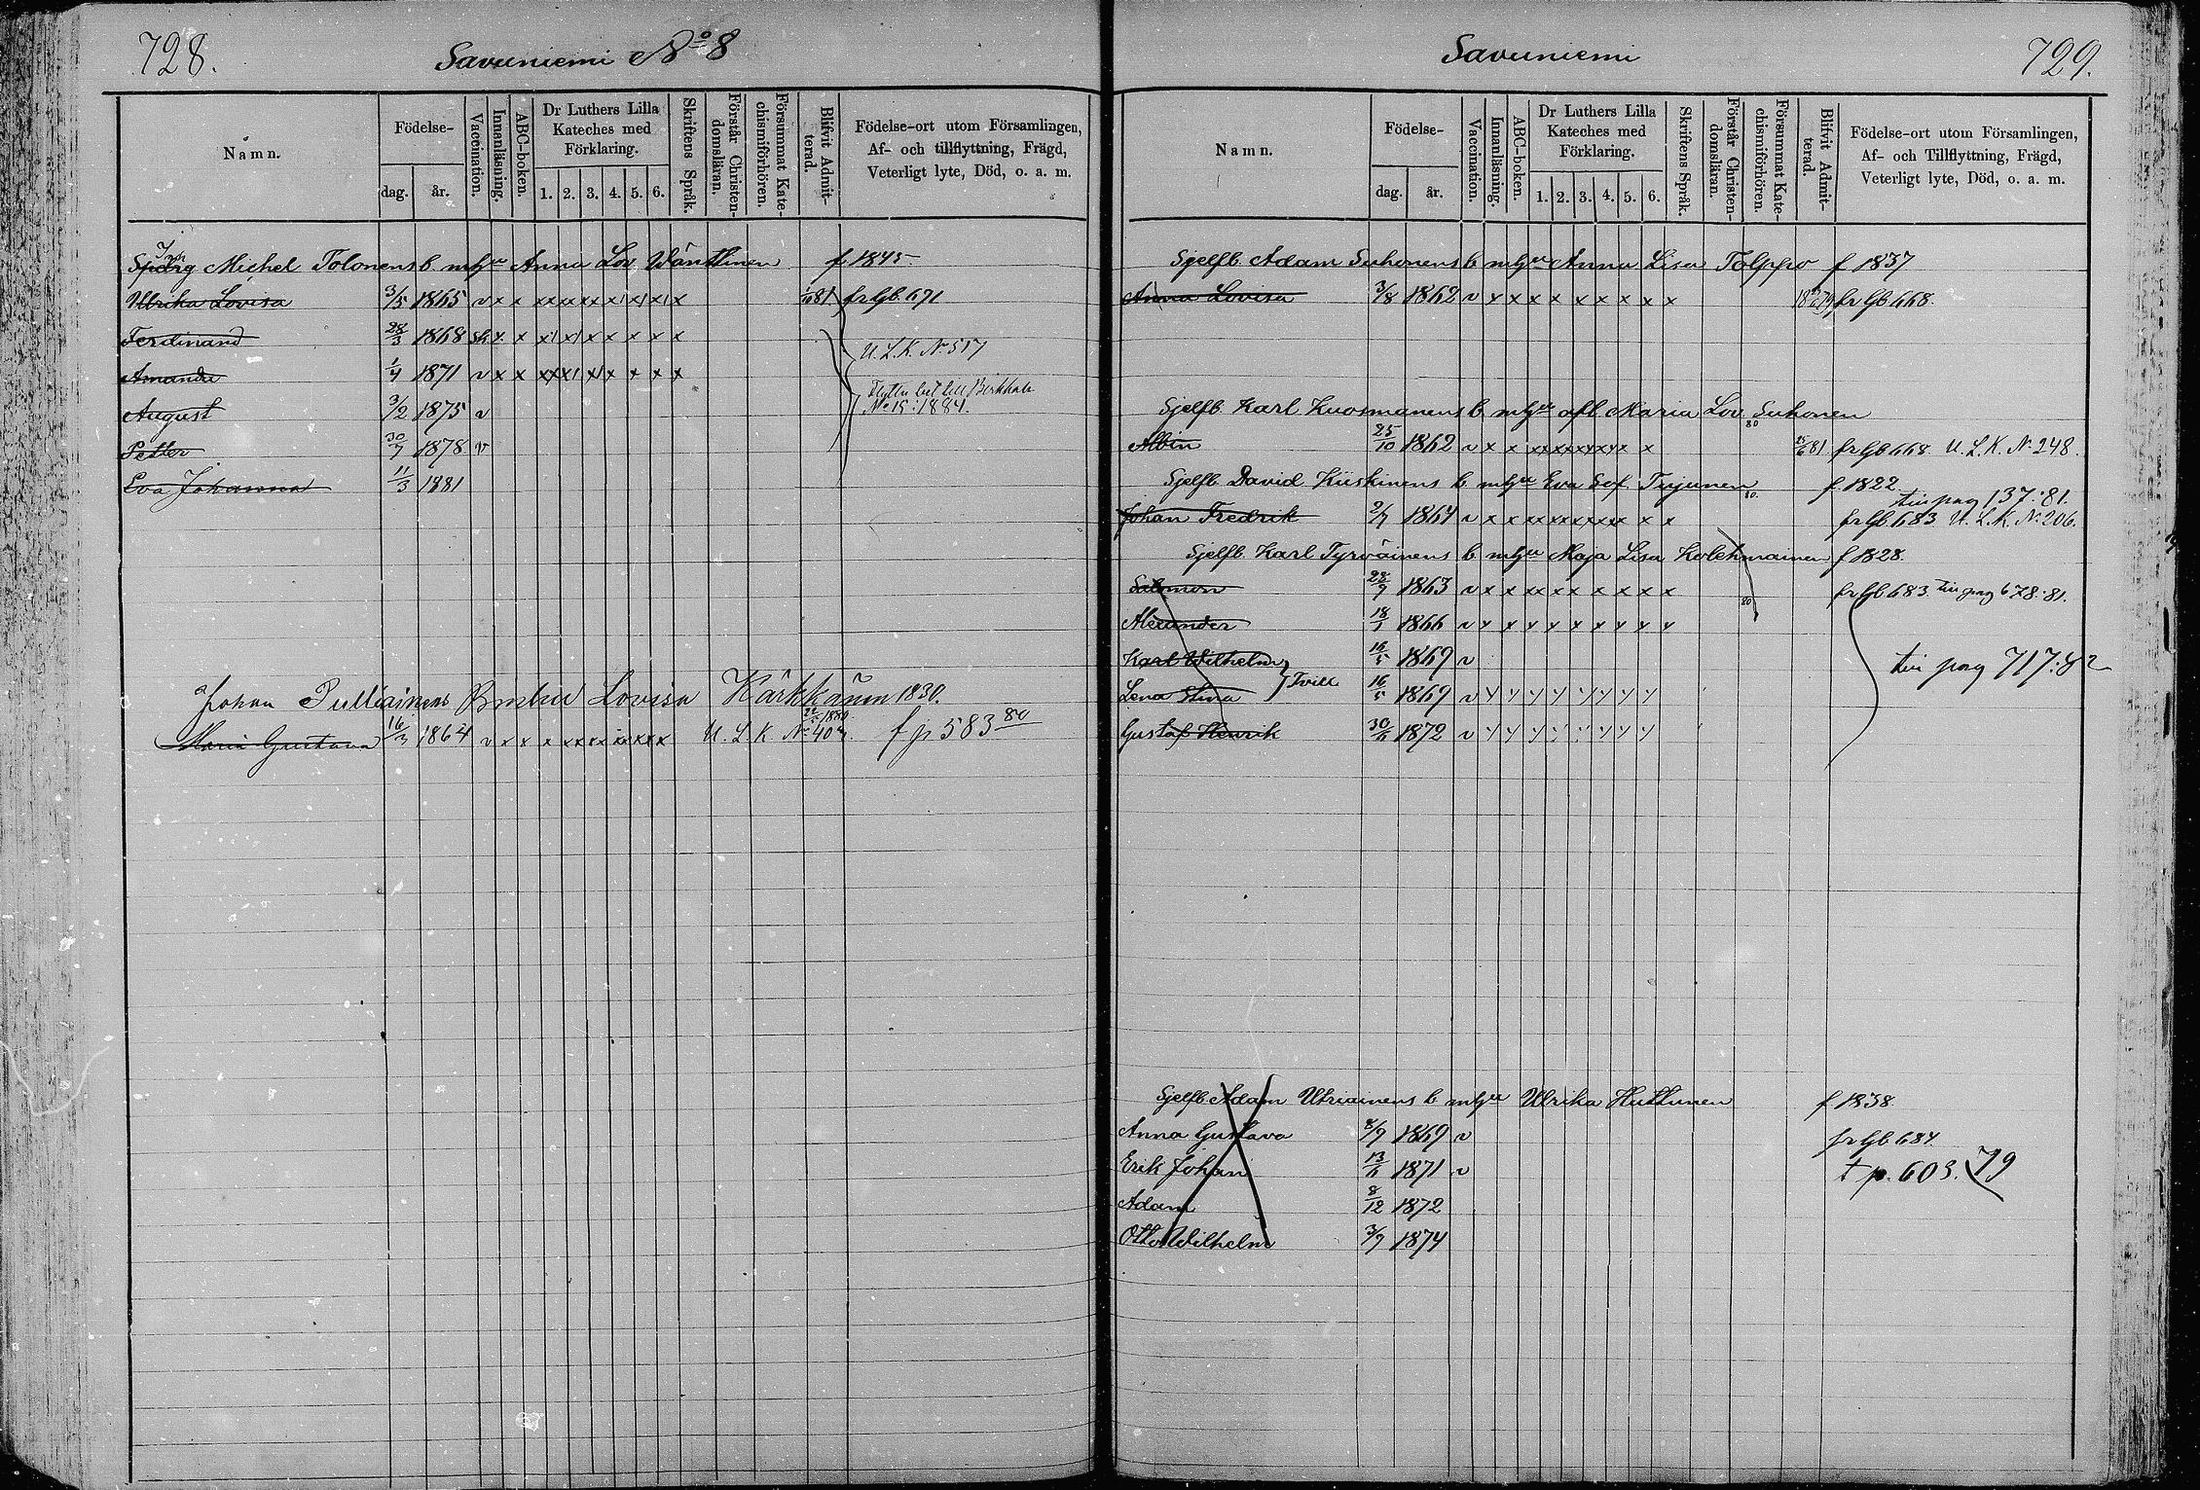 728.
Savuniemi No 8
Namn.
Födelse-
dag.
år.
Vaccination.
Innanläsning.
ABC-boken.
Dr Luthers Lilla Kateches med Förklaring.
1. 2. 3. 4. 5. 6.
Skriftens Språk.
Förstår Christen-domsläran.
Försummat Kate-chismiförhören.
Blifvit Admit-terad.
Födelse-ort utom Församlingen,
Af- och tillflyttning, Frägd,
Veterligt lyte, Död, o. a. m.
Michel Tolonens b mhu Anna Lov Wänttinen f 1845
Ulrika Lovisa 3/5 1865 v x x xx xx xx x x x x 81 fr Gb. 671
Ferdinand 28/3 1868 x x x x x x x x x
U. L. K. No 517
Amanda 1/4 1871 v x x x x x x x x x
No 15: 1884.
August 3/2 1875 v
Petter 30/7 1878 v
Eva Johanna 11/3 1881
Johan Pulliainens Lovisa Kärkkäinen 1830.
Maria Gustava 16/3 1864 v x x x x x x x x x x U. L K No 407. 1880 f p 583 80
729.
Savuniemi
Namn.
Födelse-
dag.
år.
Vaccination.
Innanläsning.
ABC-boken.
Dr Luthers Lilla Kateches med Förklaring.
1. 2. 3. 4. 5. 6.
Skriftens Språk.
Förstår Christen-domsläran.
Försummat Kate-chismiförhören.
Blifvit Admit-terad.
Födelse-ort utom Församlingen,
Af- och Tillflyttning, Frägd,
Veterligt lyte, Död, o. a. m.
Sjelfb. Adam Suhonens b mhu Anna Lisa Tolppo f 1837
Anna Lovisa 3/8 1862 v x x x x x x x x x 79 fr Gb 668.
Sjelfb. Karl Kuosmanens b mhu afl. Maria Lov Suhonen
Albin 25/10 1862 v x x x x x x x x x 80 81 fr Gb 668. U. L. K. No 248.
Sjelfb David Kiiskinens b mhu Eva Sof. Turunen f. 1822
till pag 137: 81.
Johan Fredrik 2/7 1864 v x x x x x x x x x 80. fr Gb. 683 U. L. K. No 206.
Sjelfb. Karl Tyrväinens b mhu Maja Lisa Kolehmainen f 1828.
Salomon 1863 v x x x x x x x x x 80 fr Gb 683. till pag 678: 81.
Alexander 18/1 1866 v x x x x x x x x x
Karl Wilhelm 16/5 1869 v
Tvill
till pag 717: 82
Lena Stina 16/5 1869 v
Gustaf Henrik 30/11 1872 v
Sjelfb Adam Utriainens b mhu Ulrika Huttunen f 1838.
Anna Gustava 8/9 1869 v fr Gb. 684.
Erik Johan 13/11 1871 v t p. 603. 79
Adam 8/12 1872
Otto Wilhelm 3/9 1874